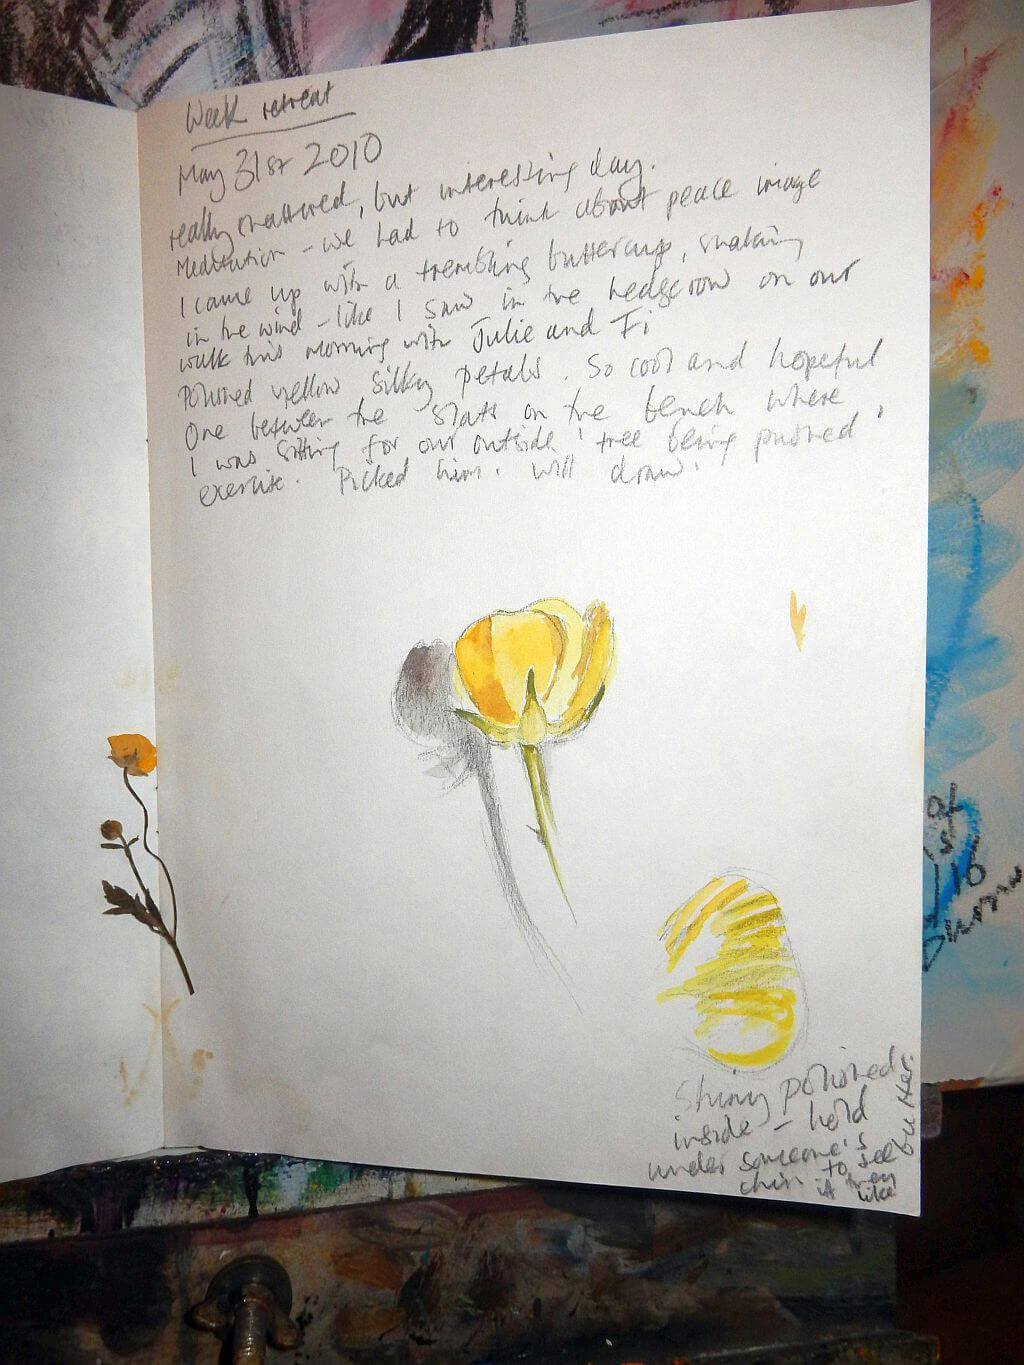 Week retreat
May 31st 2010
really shattered, but interesting day.
Meditation - we had to think about peace image
I came up with a trembling buttercup, shaking
in the wind - like I saw in the hedgerow on our
walk this morning with Julie and Fi
Polished yellow silky petals. So cool and hopeful
One between the slats on the bench where
I was sitting for our outside 'tree being pushed'
exercise. Picked him. Will draw.
Shiny polished
inside - hold
under someone's
chin to see
if they like
butter.